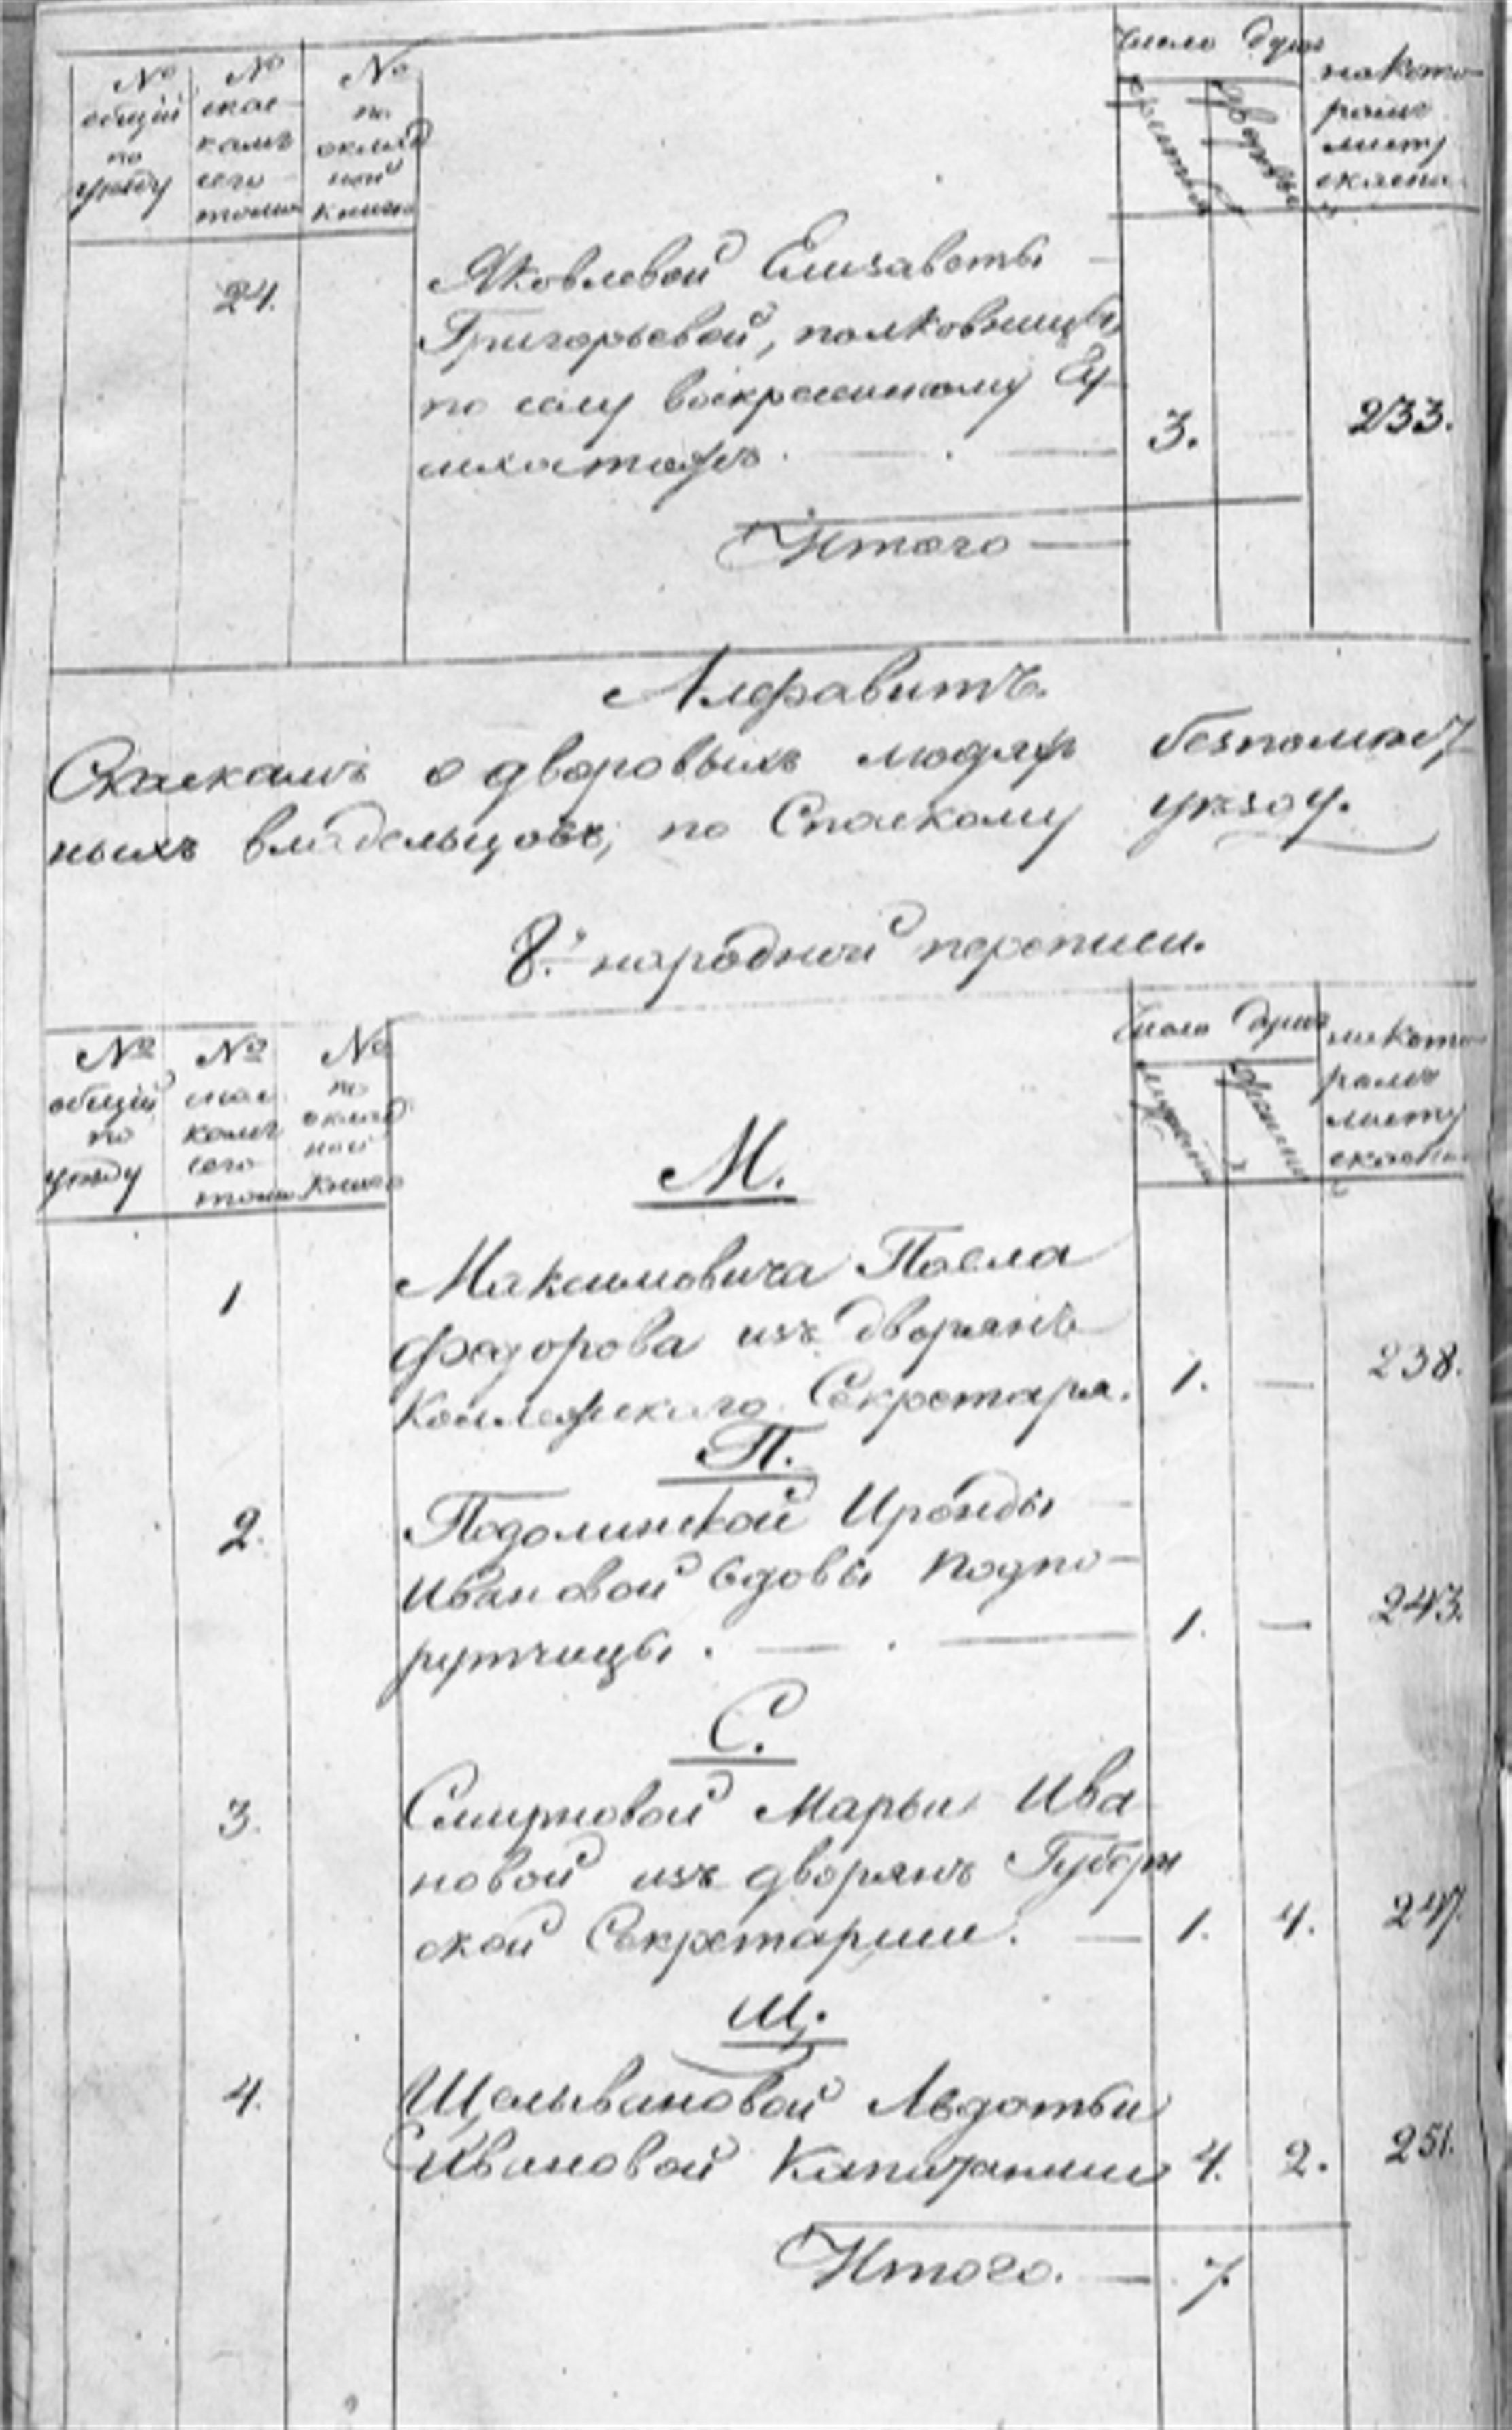 № общій по уѣзду
№ скаскамъ сего тома
№ по окладной книгѣ
Число душъ
крестьян
дворовы
на которомъ листу скаска
24.
Яковлевой Елизаветы
Григорьевой, полковницы,
по селу Воскресенскому
3.
233.
Итого
Алфавитъ.
Скаскамъ о дворовыхъ людяхъ безпомѣст
ныхъ владельцовъ, по Спаскому уѣзду.
8й народной переписи.
№ общій по уѣзду
№ скаскамъ сего тома
№ по окладной книгѣ
Число душъ
на которомъ листу скаска
М.
1
Максимовича Павла
Федорова изъ дворянъ
Коллежскаго Секретаря. 1. — 238.
П.
2.
Подолинской Ироиды
Ивановой вдовы подпо-
рутчицы. 1. — 243.
С.
3.
Смирновой Марьи Ива
новой изъ дворянъ Губерн
ской Секретарши. — 1. 4. 247.
Щ.
4.
Щелывановой Авдотьи
Ивановой Капитанши 4. 2. 251.
Итого. — 7